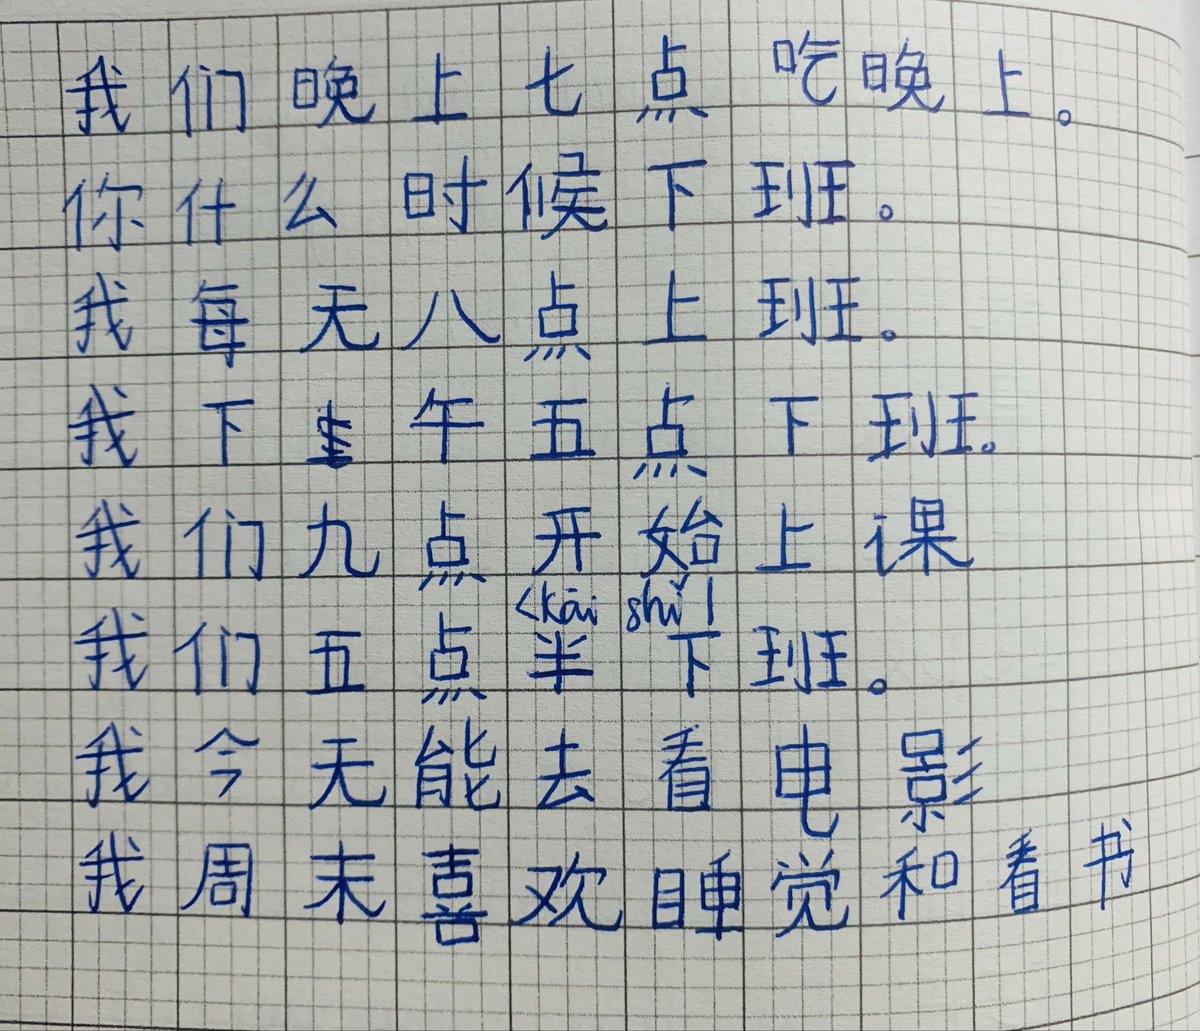 我们晚上七点吃晚上。
你什么时候下班。
我每天八点上班。
我下午五点下班。
我们九点开始上课
<kāi shǐ|
我们五点半下班。
我今天能去看电影
我周末喜欢睡觉和看书